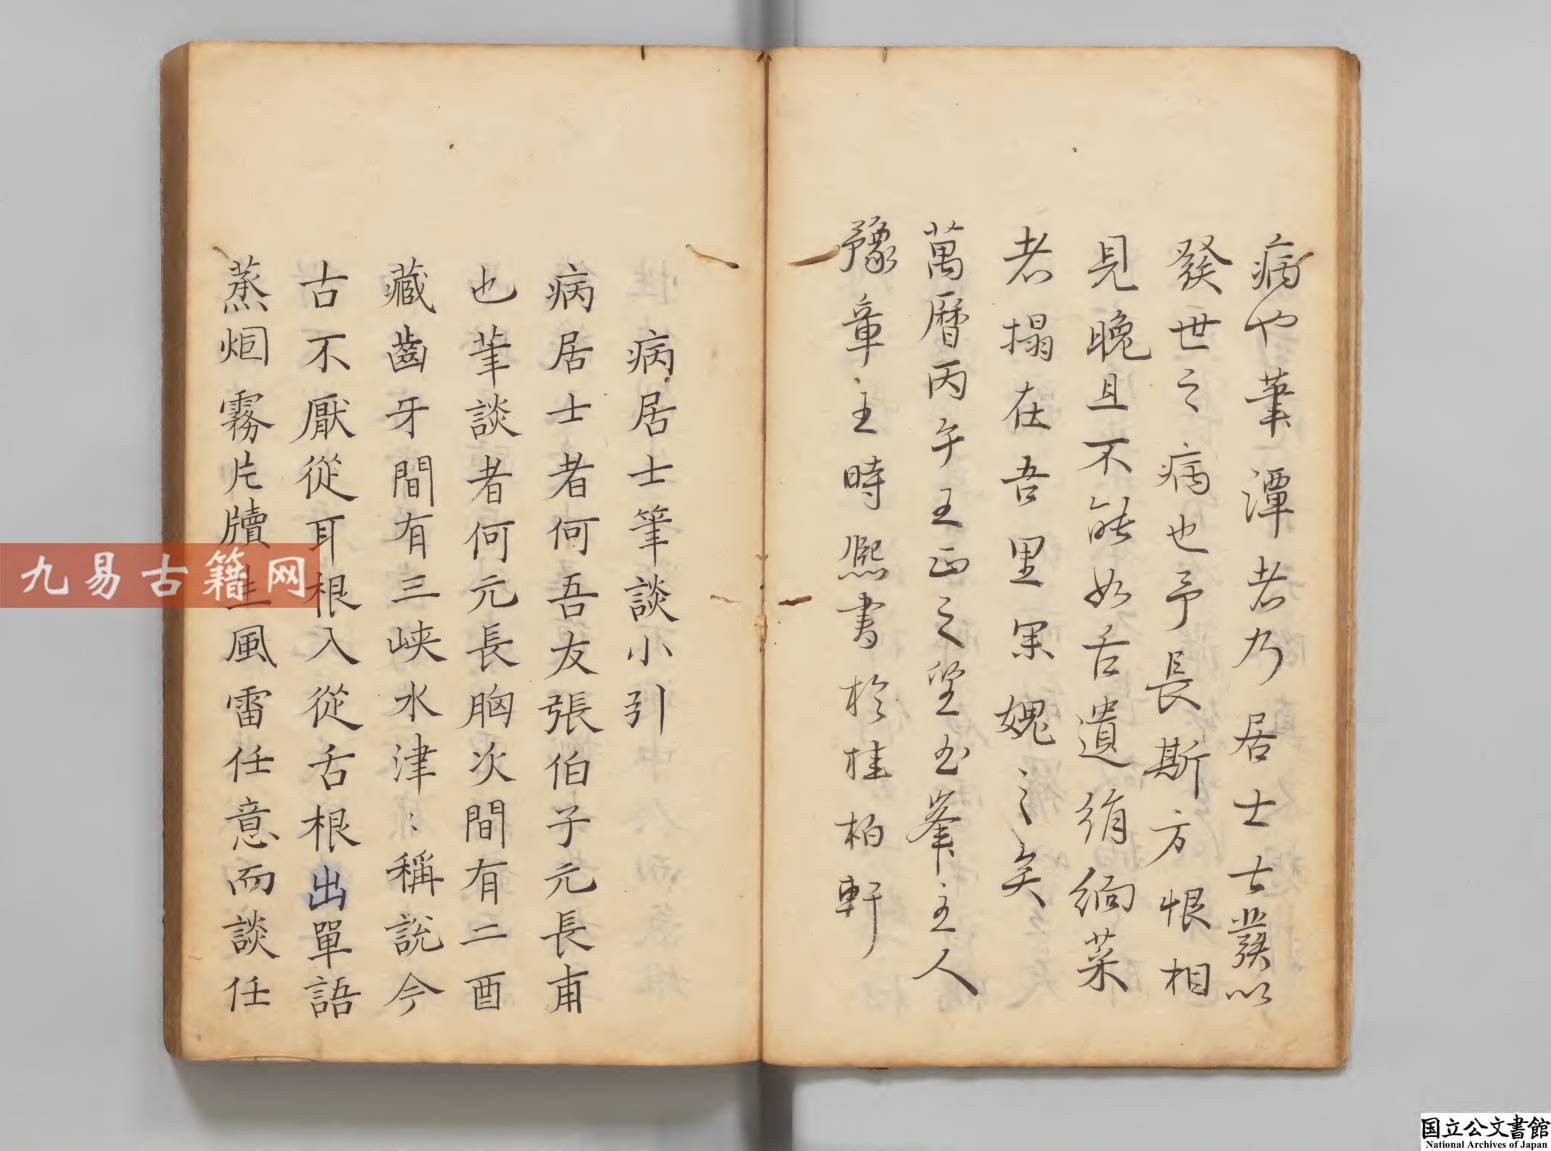 病也筆譚者乃居士士發以
發世之病也予長斯方恨相
見晚且不能如舌遺絹緗菜
老搨在吾里累媿之矣
萬曆丙午王正之望玉峯主人
豫章主時熙書於桂柏軒
病居士筆談小引
病居士者何吾友張伯子元長甫
也筆談者何元長胸次間有二酉
藏齒牙間有三峽水津〻稱說今
古不厭從耳根入從舌根出單語
蒸烟霧片牘生風雷任意而談任
九易古籍网
国立公文書館
National Archives of Japan